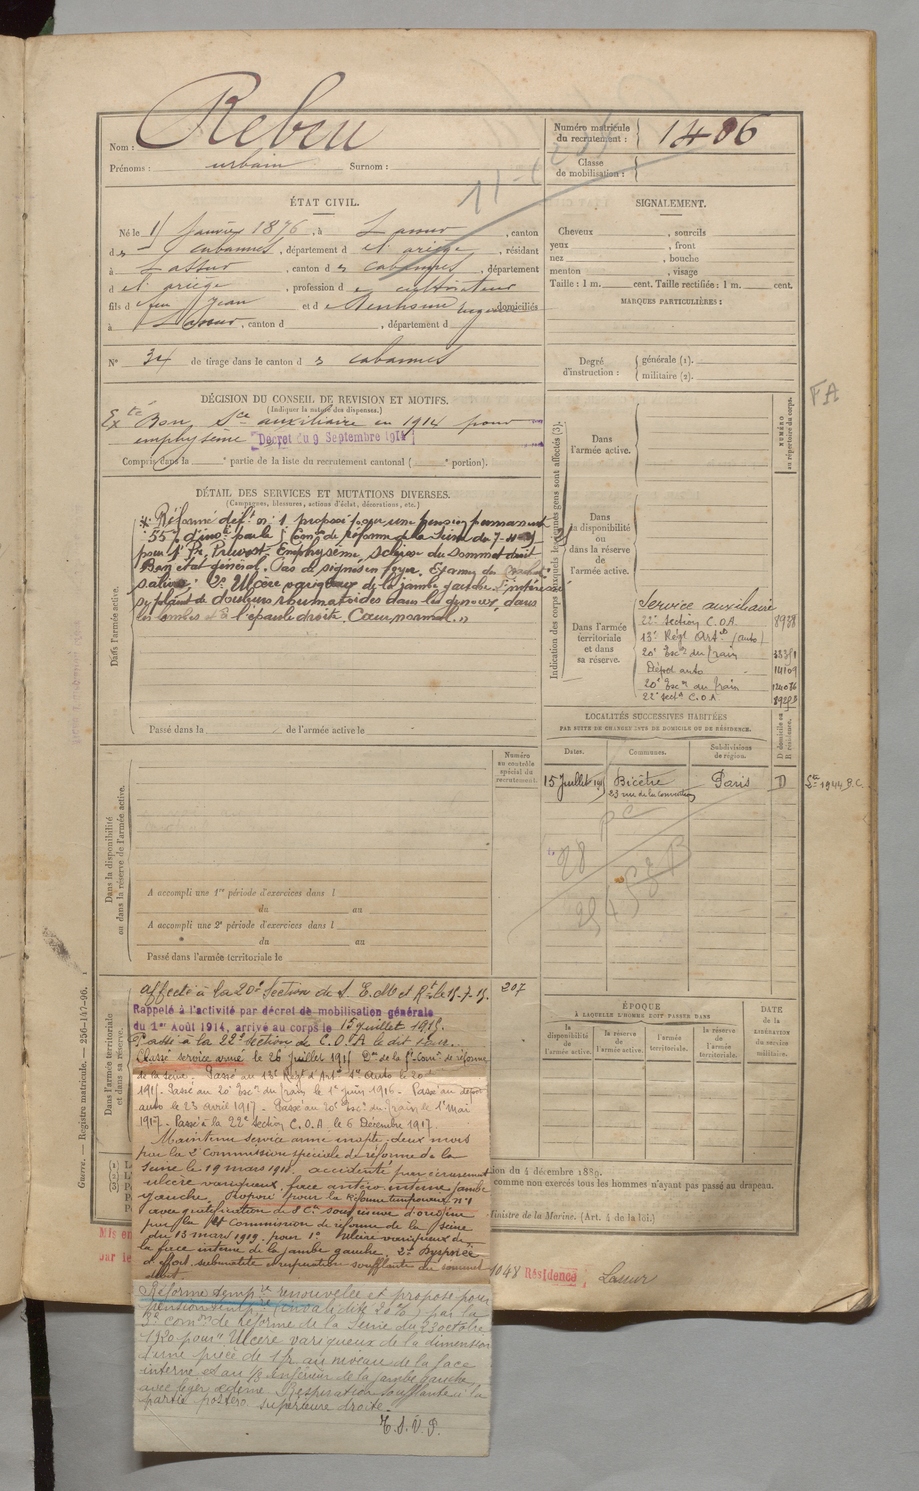 Nom : Rebeu
Prénoms : urbain Surnom :
Numéro matricule du recrutement : 1406
Classe de mobilisation :
ÉTAT CIVIL.
Né le 1 janvier 1876, à Lassur, canton
d es cabannes, département d el ariège, résidant
à Lassur, canton d es cabannes, département
d el ariège, profession d e cultivateur
fils d e feu Jean et d e domiciliés
à Lassur, canton d , département d
N° 34 de tirage dans le canton d es cabannes
SIGNALEMENT.
Cheveux , sourcils
yeux , front
nez , bouche
menton , visage
Taille : 1 m. cent. Taille rectifiée : 1 m. cent.
MARQUES PARTICULIÈRES :
Degré d'instruction : générale (1).
militaire (2).
FA
DÉCISION DU CONSEIL DE REVISION ET MOTIFS.
(Indiquer la nature des dispenses.)
Exté Bon Sce auxiliaire en 1914 pour
emphysème Décret du 9 Septembre 1914
Compris dans la e partie de la liste du recrutement cantonal ( e portion).
DÉTAIL DES SERVICES ET MUTATIONS DIVERSES.
(Campagnes, blessures, actions d'éclat, décorations, etc.)
Dans l'armée active.
Réformé déft n: 1 proposé pour une pension permanent
55% d'invté par la Comon de réforme de la Seine du 7
pour 1° Emphysème Sclérose du Sommet droit
Bon état général. Pas de signes en foyer. Examen du
2° Ulcère variqueux de la jambe gauche. L'intéressé
se plaint de douleurs rhumatoïdes dans les genoux, dans
les et à l'épaule droite. Cœur normal. »
Passé dans la de l'armée active le
Indication des corps auxquels les jeunes gens sont affectés (3).
NUMÉRO au répertoire du corps.
Dans l'armée active.
Dans la disponibilité ou dans la réserve de l'armée active.
Dans l'armée territoriale et dans sa réserve.
Service auxiliaire
22e Section C.O.A. 8938
13e Régt Artie (auto)
20e Escon du Train
Dépôt auto 14109
20e Escon du Train
22e Secton C.O.A.
LOCALITÉS SUCCESSIVES HABITÉES
PAR SUITE DE CHANGEMENTS DE DOMICILE OU DE RÉSIDENCE.
D domicile ou R résidence.
Dates. Communes. Subdivisions de région.
15 Juillet Bicêtre Paris D
23 rue de la Convention
1944 B.C.
Numéro au contrôle spécial du recrutement.
Dans la disponibilité ou dans la réserve de l'armée active.
A accompli une 1re période d'exercices dans l
du au
A accompli une 2e période d'exercices dans l
du au
Passé dans l'armée territoriale le
Dans l'armée territoriale et dans sa réserve.
affecté à la 20e Section de S. E. M et R le 15-7-15. 207
Rappelé à l'activité par décret de mobilisation générale
du 1er Août 1914, arrivé au corps le 15 juillet 1915.
Passé à la 22e section de C.O.A. le dit jour.
Classé service armé le 26 juillet 1915 Don de la Comon de réforme
de la Seine. Passé au 13e Régt d'Artie 1re Auto le 20
1915. Passé au 20e Escon du Train le 1er juin 1916. Passé au dépôt
auto le 23 avril 1917. Passé au 20e Escon du Train le 1er Mai
1917. Passé à la 22e Section C.O.A. le 6 Décembre 1917.
Maintenu service armé inapte deux mois
par la 2e Commission spéciale de réforme de la
Seine le 19 mars 1918. accidenté par écrasement
ulcère variqueux face antéro interne jambe
gauche. Proposé pour la Réforme temporaire n°1
avec gratification de 8e Cie sous réserve d'origine
par la Commission de réforme de la Seine
du 13 mars 1919 pour 1° Ulcère variqueux de
la face interne de la jambe gauche. 2° Dyspnée
d'effort submatité et respiration soufflante du sommet
droit.
Réforme tempre renouvelée et proposé pour
pension tempre (invalidité 20 %) par la
3e comon de Réforme de la Seine du 23 octobre
1920 pour " Ulcère variqueux de la dimension
d'une pièce de 1 fr au niveau de la face
interne et au 1/3 inférieur de la jambe gauche
avec léger œdème. Respiration soufflante à la
partie postéro supérieure droite.
T. S. V. P.
ÉPOQUE
À LAQUELLE L'HOMME DOIT PASSER DANS
la disponibilité de l'armée active. la réserve de l'armée active. l'armée territoriale. la réserve de l'armée territoriale.
DATE de la LIBÉRATION du service militaire.
tion du 4 décembre 1889.
comme non exercés tous les hommes n'ayant pas passé au drapeau.
Ministre de la Marine. (Art. 4 de la loi.)
Mis en
par le
1048 Résidence Lassur
Guerre. — Registre matricule. — 256-147-96.